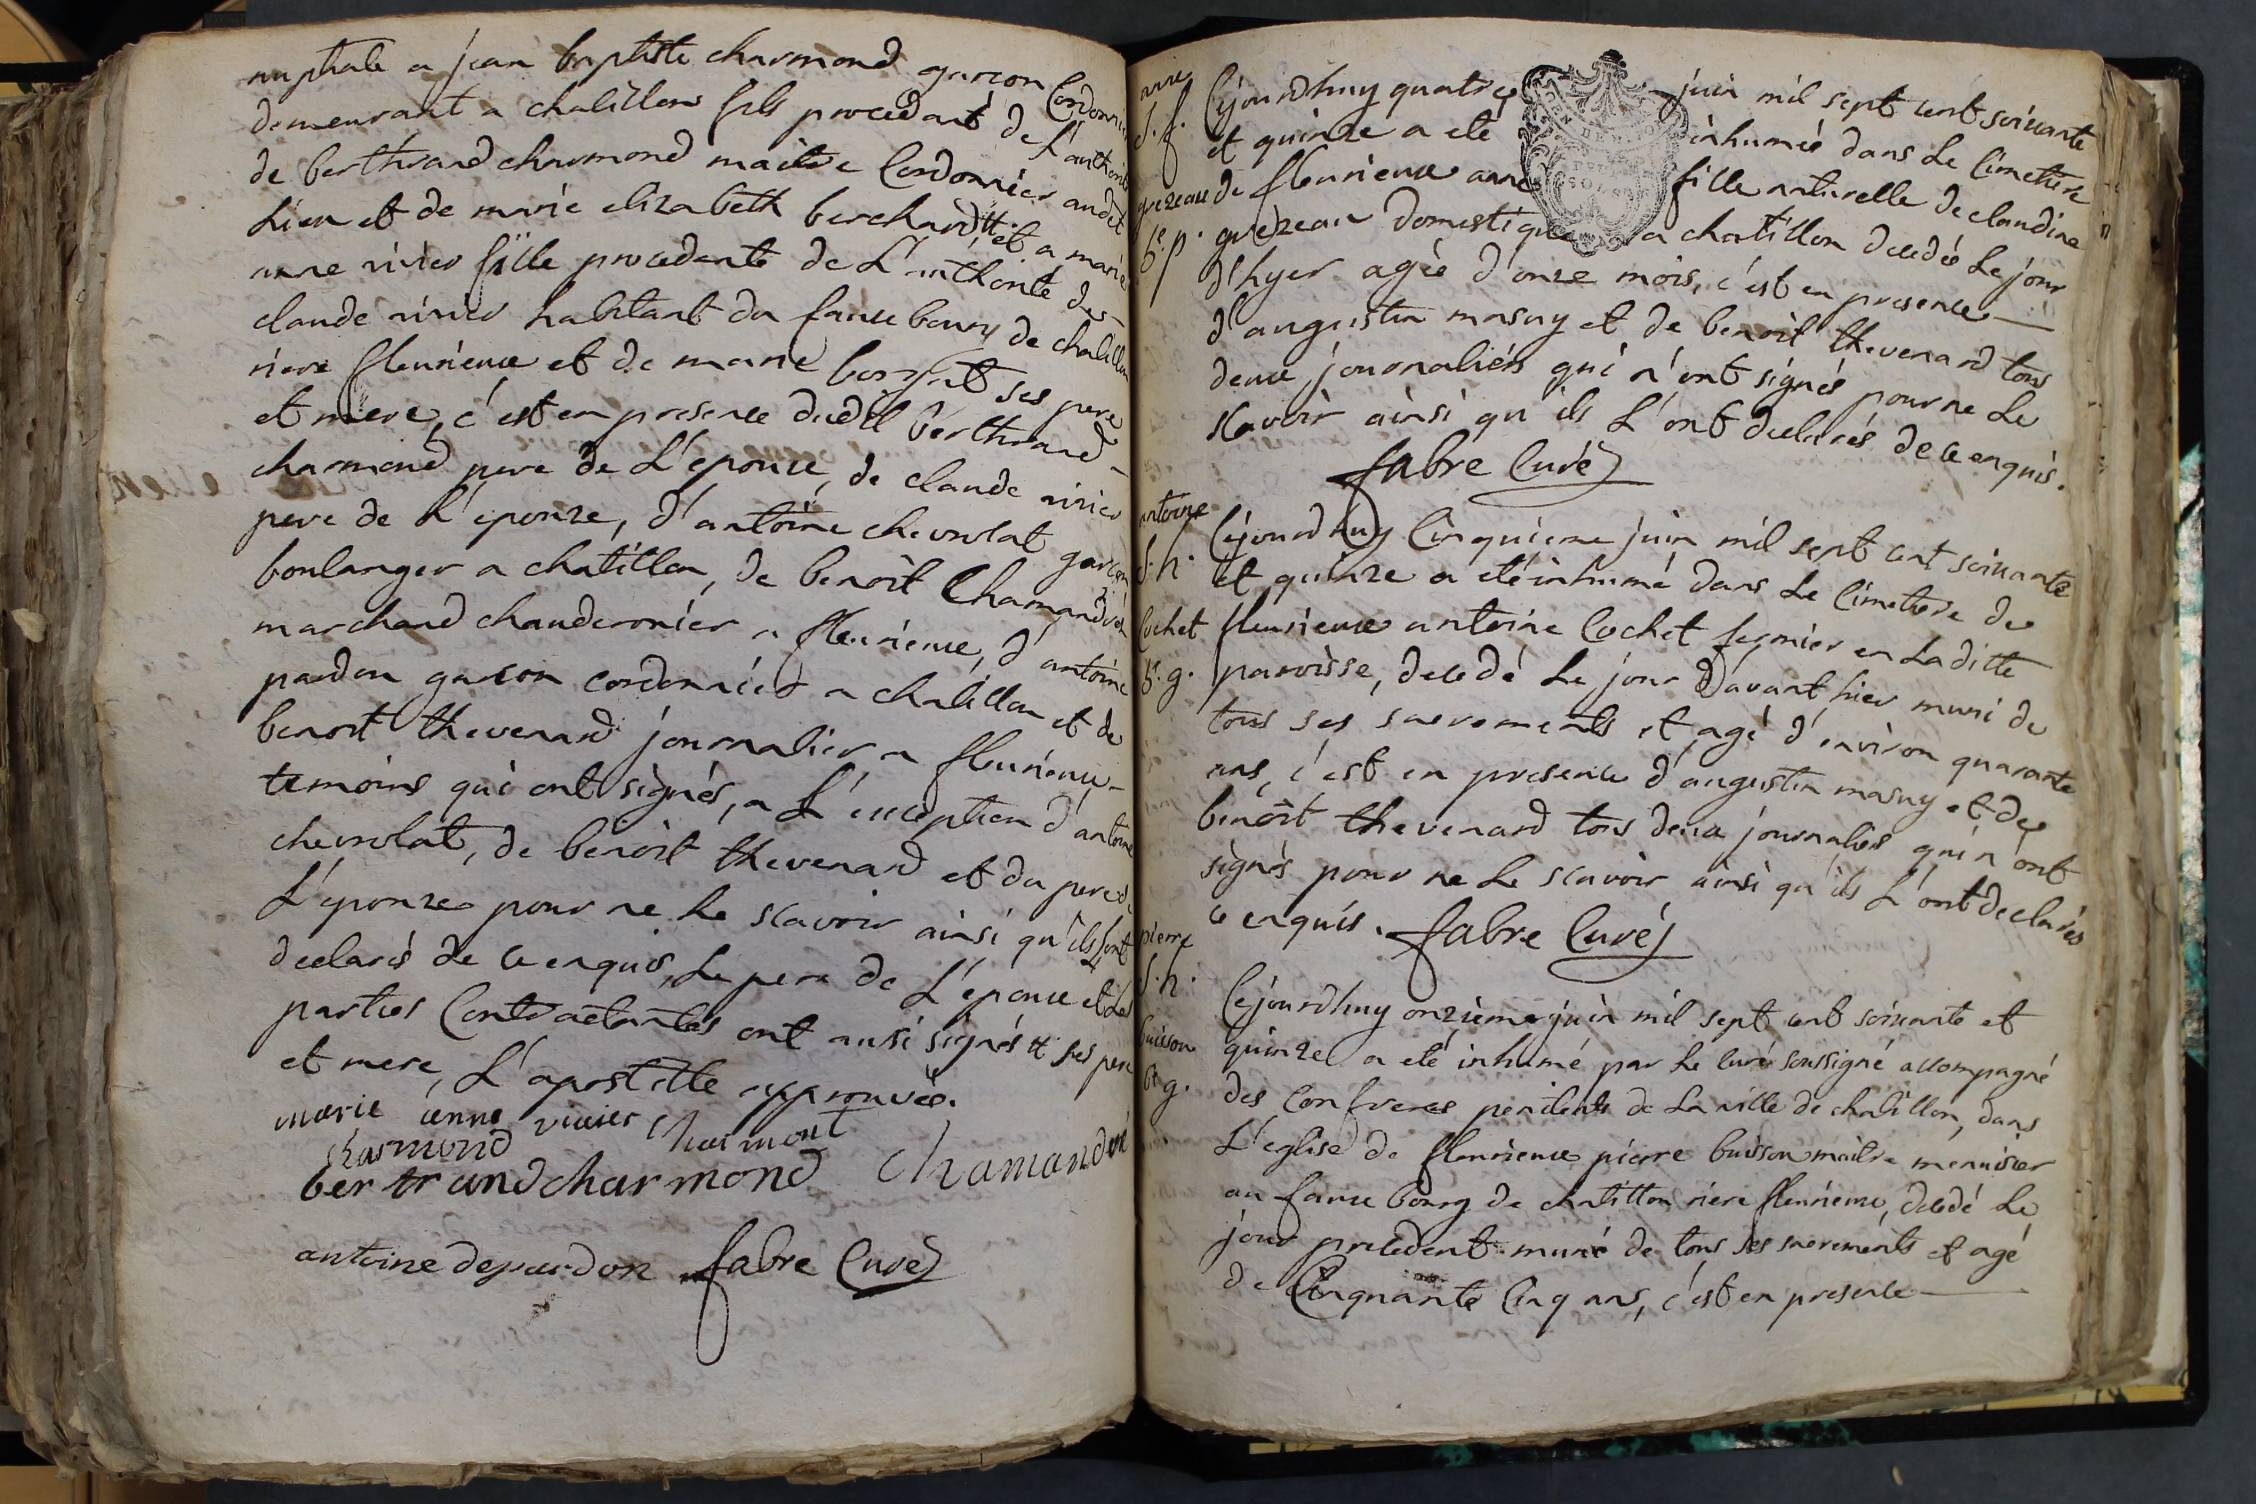 nuptiale a jean baptiste charmond garçon Cordonnier
demeurant a chatillon fils procedant de L'authorité
de berthrand charmond maitre Cordonnier audit
Lieu et de marie elizabeth berchard # et a marie
anne vivier fille procedante de L'authorité de
claude vivier habitant du fauxbourg de chatillon
riere fleurieux et de marie ses pere
et mere, c'est en presence dudit berthrand
charmond pere de L'epoux, de claude vivier
pere de L'epouze, d'antoine chevrolat garçon
boulanger a chatillon, de benoit Chamandré
marchand chauderonier a fleurieux, d'antoine
pardon garçon cordonnier a chatillon et de
benoit thevenard journalier a fleurieux
temoins qui ont signés, a L'exception d'antoine
chevrolat, de benoit thevenard et du pere de
L'epouze pour ne le scavoir ainsi qu'ils L'ont
declarés de ce enquis, Le pere de L'epoux et Les
parties Contractantes ont aussi signés # ses pere
et mere, L'apostille approuvée.
marie anne vivier charmont
charmond
bertrand charmond Chamandré
antoine depardon fabre Curé
anne
d. f.
grezeau
b.e p.
Cejourdhuy quatre juin mil sept cent soixante
et quinze a eté inhumée dans Le Cimetiere
de fleurieux anne fille naturelle de claudine
grezeau domestique a chatillon decedée Le jour
d'hyer agée d'onze mois, c'est en presence
d'augustin masuy et de benoit thevenard tous
deux journaliers qui n'ont signés pour ne Le
scavoir ainsi qu'ils L'ont declarés de ce enquis.
fabre Curé
antoine
d. h.
Cochet
b.e g.
Cejourdhuy Cinquieme juin mil sept cent soixante
et quinze a eté inhumé dans Le Cimetiere de
fleurieux antoine Cochet fermier en Laditte
paroisse, decedé Le jour d'avant hier muni de
tous ses sacrements et agé d'environ quarante
ans, c'est en presence d'augustin masuy et de
benoit thevenard tous deux journaliers qui n'ont
signés pour ne Le scavoir ainsi qu'ils L'ont declarés
ce enquis. fabre Curé
pierre
d. h.
buisson
b.e g.
Cejourdhuy onzieme juin mil sept cent soixante et
quinze a eté inhumé par Le Curé soussigné accompagné
des Confreres penitents de La ville de chatillon, dans
L'eglise de fleurieux pierre buisson maitre menuisier
au fauxbourg de chatillon riere fleurieux, decedé Le
jour precedent muni de tous ses sacrements et agé
de Cinquante Cinq ans, c'est en presence